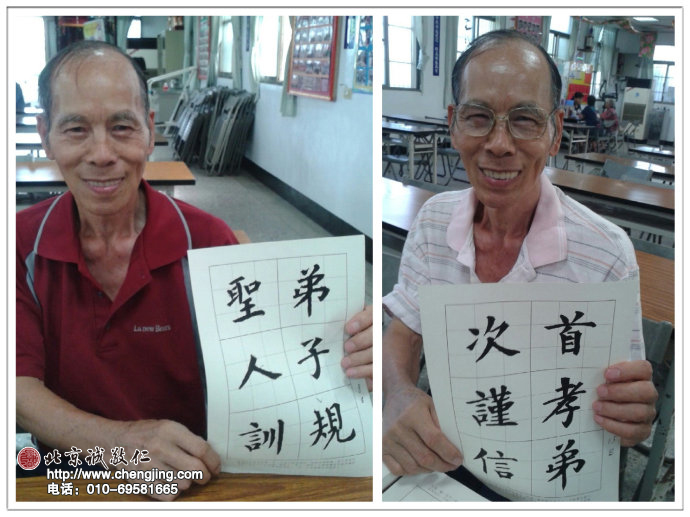 弟子規
聖人訓
首孝弟
次謹信
La new Bears
北京诚敬仁
http://www.chengjing.com
电话：010-69581665